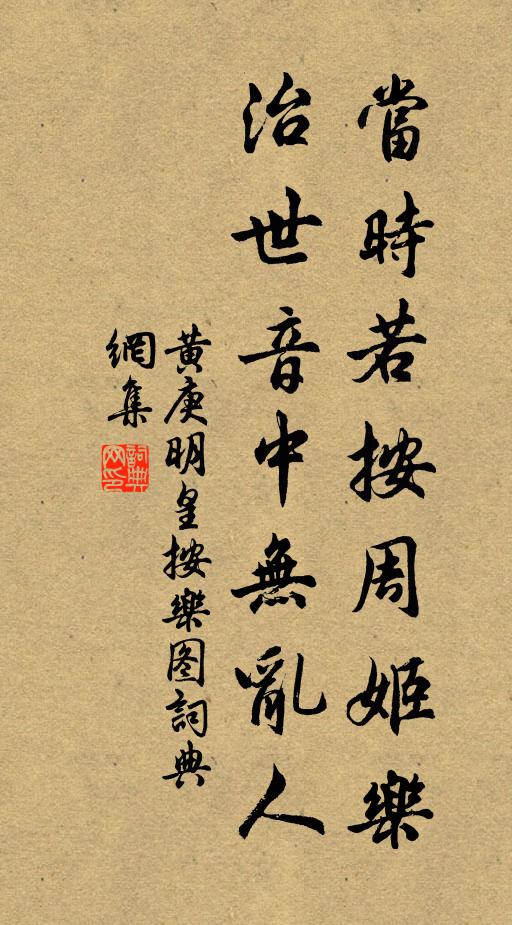 當時若按周姬樂
治世音中無亂人
黃庚明皇按樂图詞典
網集
詞典网印